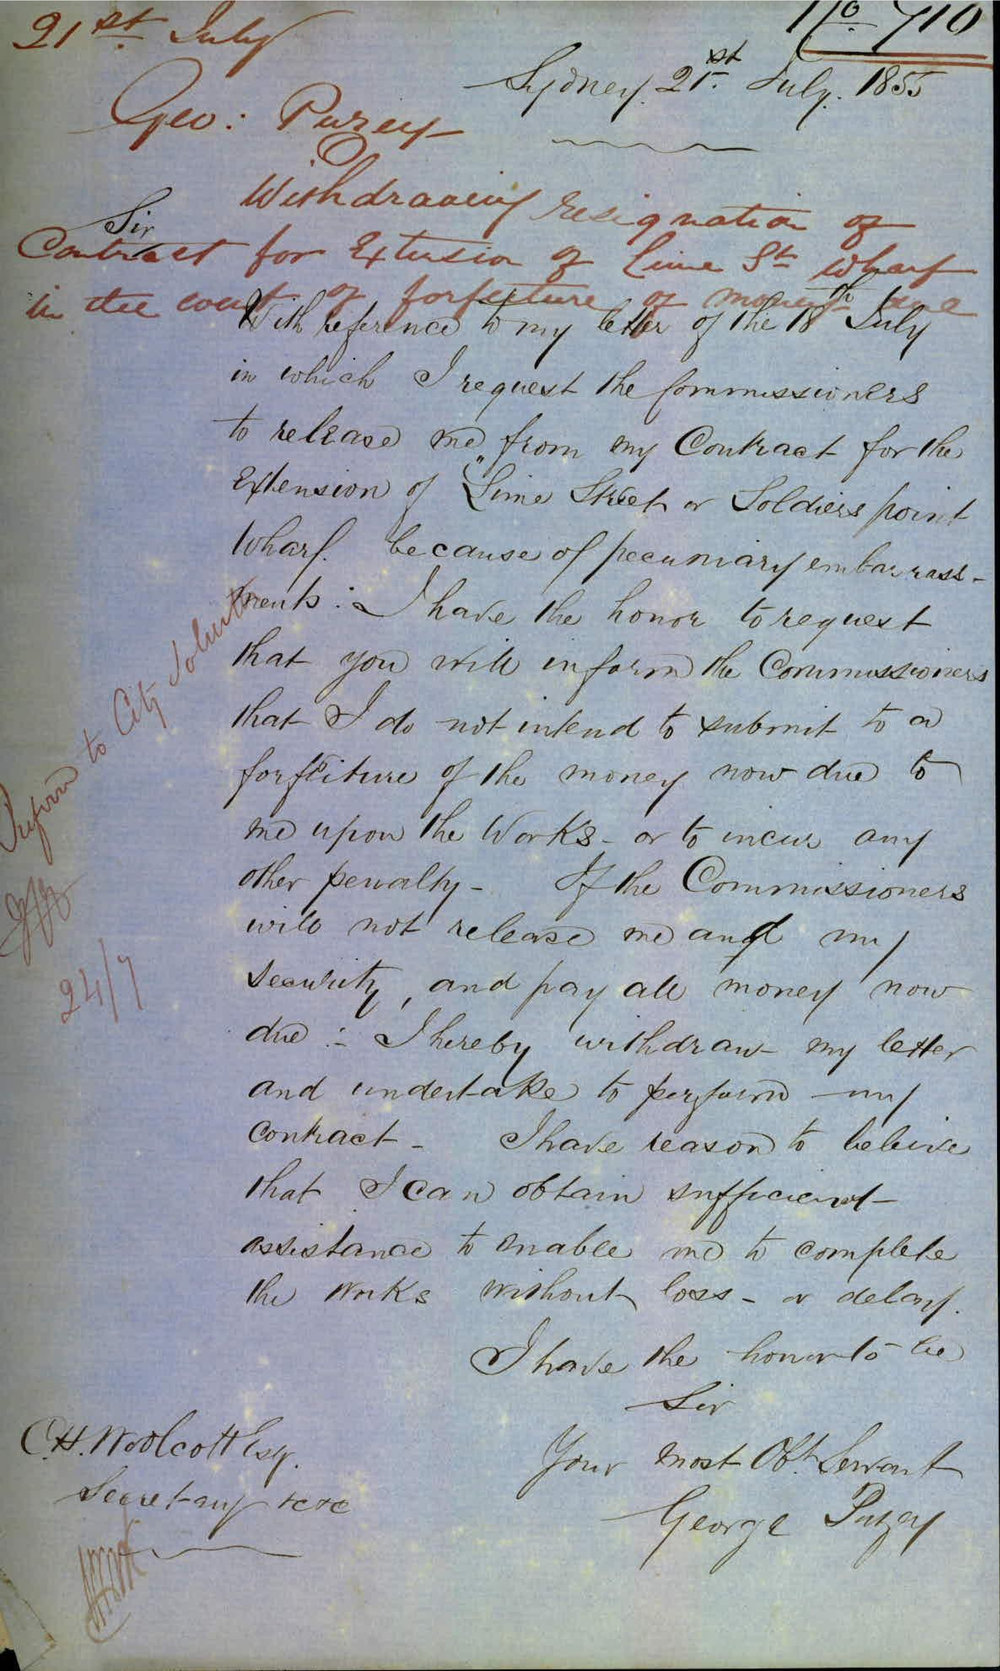 21st July
No 710
Sydney. 21st July. 1855
Geo: Puzey
Withdrawing resignation of
Sir
Contract for Extension of Lime St Wharf
in the event of forfeiture of money due
With reference to my letter of the 18th July
in which I request the Commissioners
to release me, from my Contract for the
Extension of Lime Street or Soldiers point
Wharf. because of pecuniary embarrass-
ments :- I have the honor to request
that you will inform the Commissioners
that I do not intend to submit to a
forfeiture of the money now due to
me upon the Works - or to incur any
other penalty - If the Commissioners
will not release me and my
security, and pay all money now
due :- I hereby withdraw my letter
and undertake to perform my
contract - I have reason to beleive
that I can obtain sufficient
assistance to enable me to complete
the works without loss - or delay.
I have the honor to be
Sir
Your most Obt Servant
George Puzey
C.H. Woolcott Esq.
Secretary &c &c
to City Solicitor
24/7